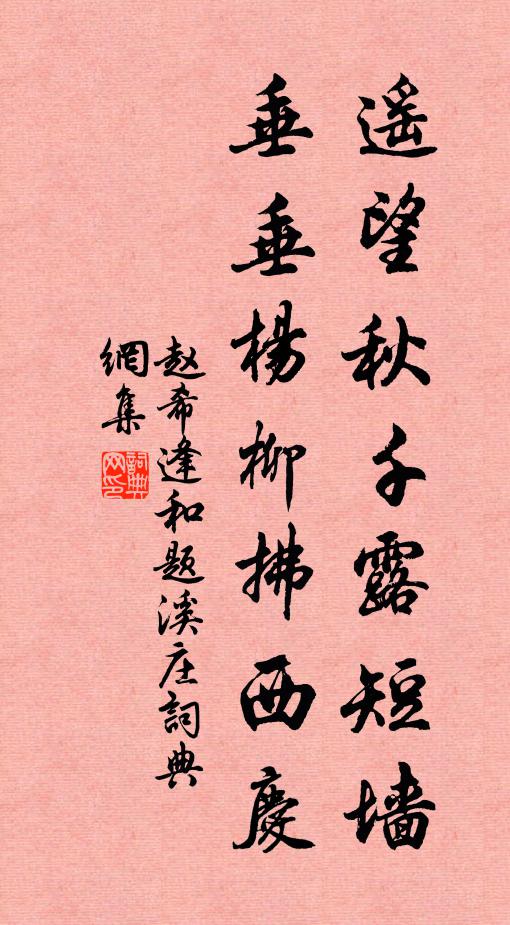 遥望秋千露短墙
垂垂楊柳拂西慶
赵希逢和题溪庄詞典
網集
詞典网印